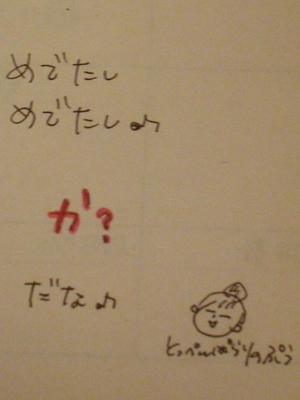 めでたし
めでたし♪
が?
だな♪
とっぺんぱらりのぷう